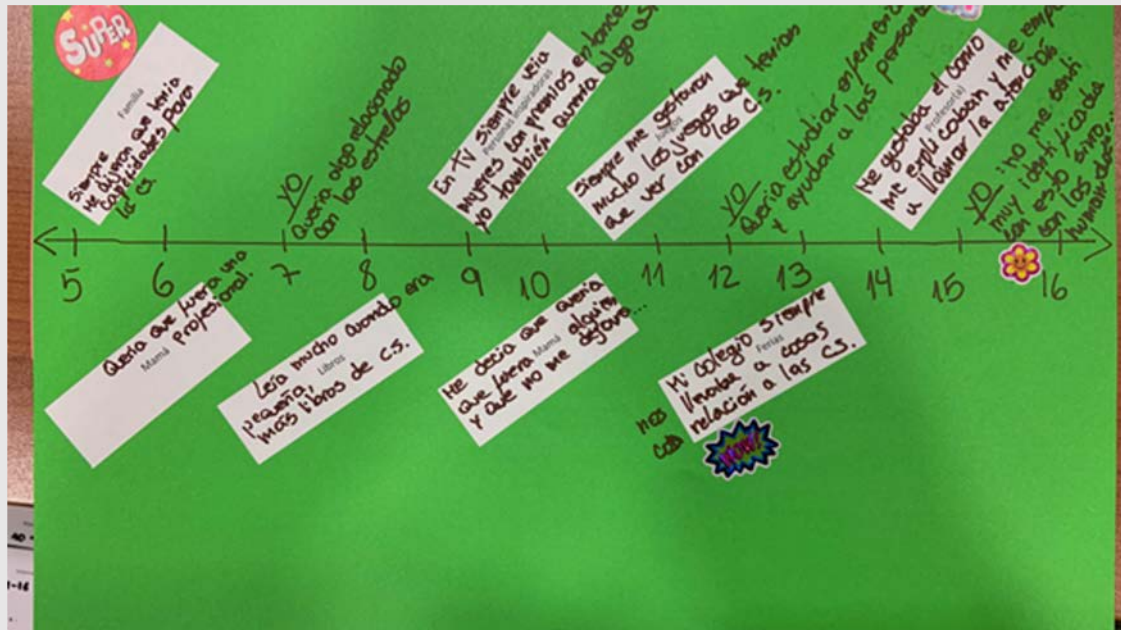 SUPER
Familia
Siempre
me dijeron que tenía
capacidades para
la cs
YO
Quería algo relacionado
con las estrellas
En TV siempre veía
Personas inspiradoras
mujeres con premios entonces
yo también quería algo así
Siempre me gustaron
Juegos
mucho los juegos que tenían
que ver con las C.S.
YO
Quería estudiar enfermería
y ayudar a las personas
Me gustaba el como
Profesor(a)
me explicaban y me empezó
a llamar la atención
YO: no me sentí
muy identificada
con esto sino,
con las
humanidades
5 6 7 8 9 10 11 12 13 14 15 16
Quería que fuera una
Mamá profesional.
Leía mucho cuando era
Libros
pequeña,
más libros de C.S.
Me decía que quería
Mamá
que fuera alguien
y que no me dejara...
Mi colegio siempre
Ferias
nos llevaba a cosas
con relación a las CS.
WOW!